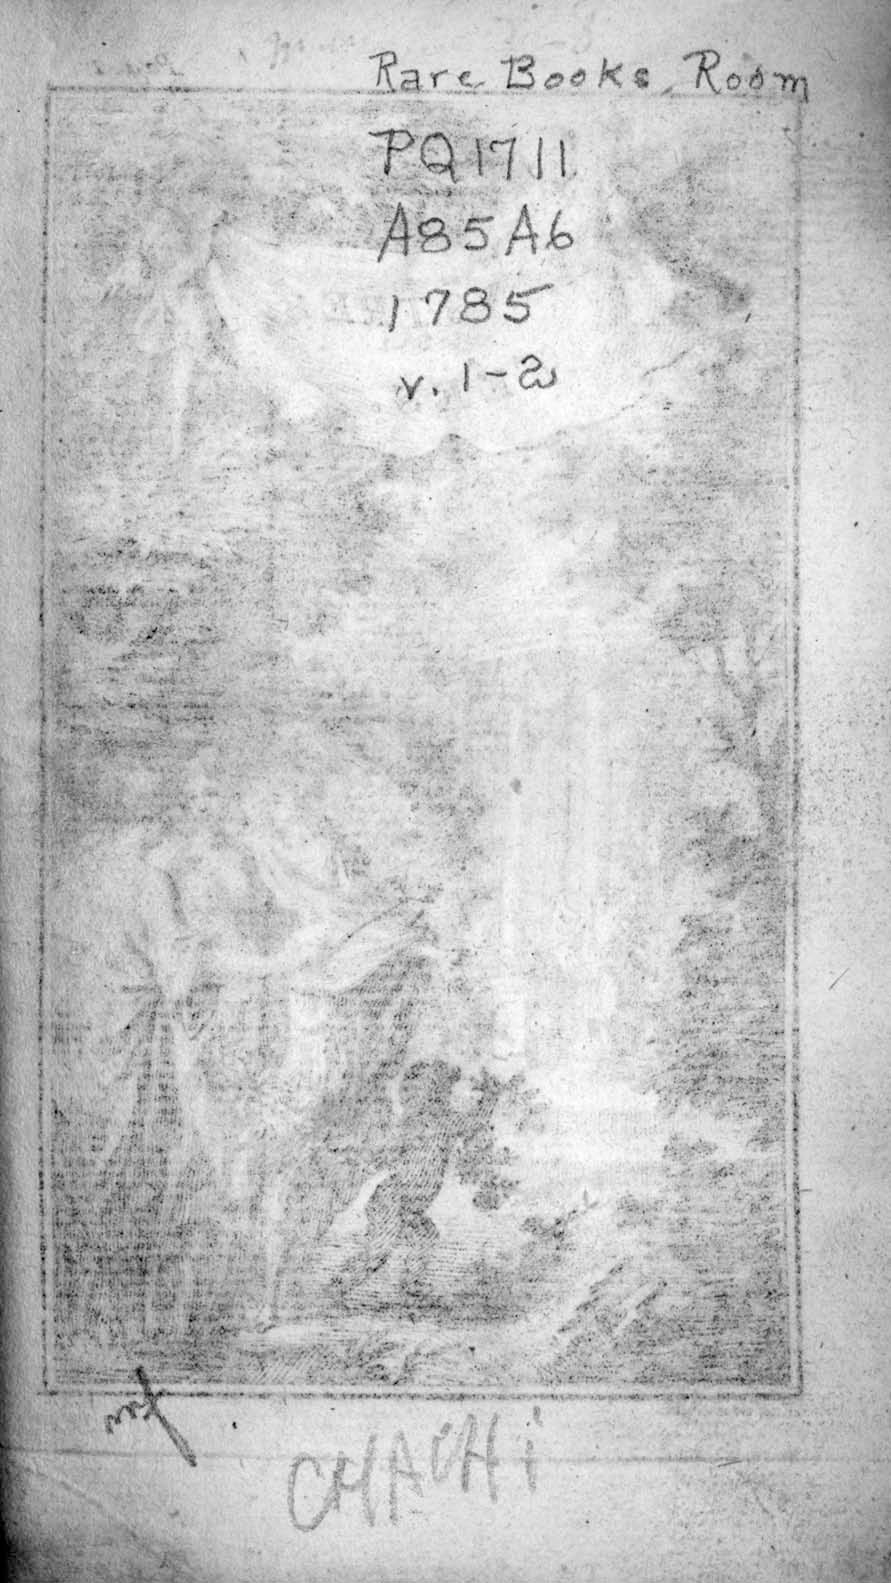 Rare Books Room
PQ1711
A85A6
1785
v. 1-2
CHACHi